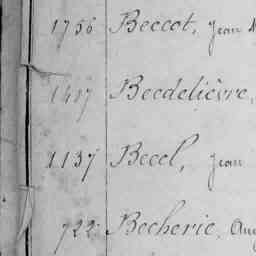 1756 Beccot, Jean
1417 Becdelièvre,
1137 Becel, Jean
722 Becherie, Aug